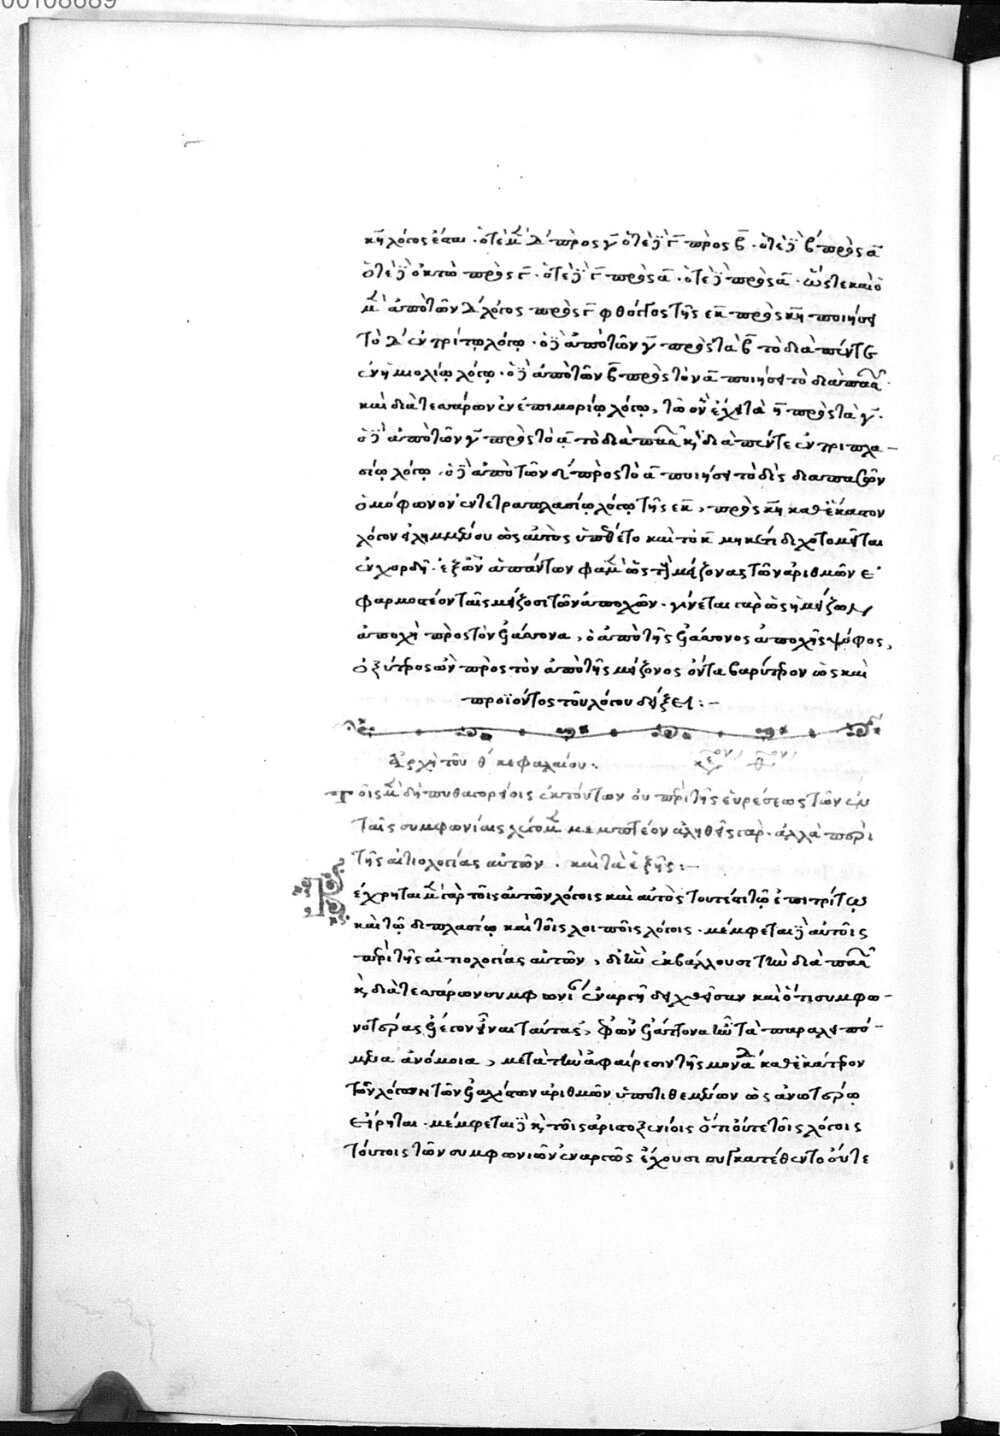 00108689
κη λόγος ἐστι · ὅτε μ δ πρὸς γ ὅτε δὲ γ πρὸς β · ὅτε δὲ β πρὸς α
ὅτε δὲ ὀκτὼ πρὸς γ · ὅτε δὲ γ πρὸς α · ὅτε δὲ πρὸς α · ὥστε καὶ ὁ
μ ἀπὸ τῶν δ λόγος πρὸς γ φθόγγος τῆς εκ πρὸς κη ποιήσει
τὸ δ ἐν τρίτῳ λόγῳ · ὁ δὲ ἀπὸ τῶν γ πρὸς τὰ β τὸ διὰ πέντε
ἐν ἡμιολίῳ λόγῳ · ὁ δὲ ἀπὸ τῶν β πρὸς τὸν α ποιήσει τὸ διὰ πασ
καὶ διὰ τεσσάρων ἐν ἐπιμορίῳ λόγῳ, τῶ ὃν ἔχει τὰ η πρὸς τὰ γ
ὁ δὲ ἀπὸ τῶν γ πρὸς τὸ α τὸ διὰ πασ κ διὰ πέντε ἐν τριπλα-
σίῳ λόγῳ · ὁ δὲ ἀπὸ τῶν δ πρὸς τὸ α ποιήσει τὸ δὶς διαπασῶν
ὁμόφωνον ἐν τετραπλασίῳ λόγῳ τῆς εκ, πρὸς κη καθ ἕκαστον
λόγον εἰλημμένου ὡς αὐτὸς ὑπέθετο καὶ τὸ κ μηκέτι διχοτομεῖται
ἐν χορδῇ · ἐξ ὧν ἁπάντων φαμ ὡς τὰς μείζονας τῶν ἀριθμῶν ἐ-
φαρμοστέον ταῖς μείζοσι τῶν ἀποχῶν · γίνεται γὰρ ὡς ἡ μείζων
ἀποχὴ πρὸς τὸν ἐλάσσονα, ὁ ἀπὸ τῆς ἐλάσσονος ἀποχῆς ψόφος,
ὀξύτερος ὢν πρὸς τὸν ἀπὸ τῆς μείζονος ὄντα βαρύτερον ὡς καὶ
προϊόντος τοῦ λόγου δείξει :-
Ἀρχὴ τοῦ θ κεφαλαίου :
Τοῖς μ δὴ πυθαγορείοις ἐκ τούτων οὐ περὶ τῆς εὑρέσεως τῶν ἐν
ταῖς συμφωνίαις λόγων μεμπτέον ἀληθὴς γάρ · ἀλλὰ περὶ
τῆς αἰτιολογίας αὐτῶν · καὶ τὰ ἑξῆς :-
Κέχρηται μ γὰρ τοῖς αὐτῶν λόγοις καὶ αὐτὸς τουτέστι τῷ ἐπιτρίτῳ
καὶ τῷ διπλασίῳ καὶ τοῖς λοιποῖς λόγοις · μέμφεται δὲ αὐτοῖς
περὶ τῆς αἰτιολογίας αὐτῶν, δι ἣν ἐκβάλλουσι τὴν διὰ πασ
κ διὰ τεσσάρων συμφωνί ἐναργῆ δειχθεῖσαν καὶ ὅτι συμφω-
νοτέρας ἔλεγον εἶναι ταύτας, ἐφ ὧν ἐλάττονα ἦν τὰ παραλειπό-
μενα ἀνόμοια, μετὰ τὴν ἀφαίρεσιν τῆς μονάδ καθ ἑκάτερον
τῶν λόγων τῶν ἐλαχίστων ἀριθμῶν ὑποτιθεμένων ὡς ἀνωτέρω
εἴρηται · μέμφεται δὲ κ τοῖς ἀριστοξενείοις ὅτι οὔτε τοῖς λόγοις
τούτοις τῶν συμφωνιῶν ἐναργῶς ἔχουσι συγκατέθεντο οὔτε